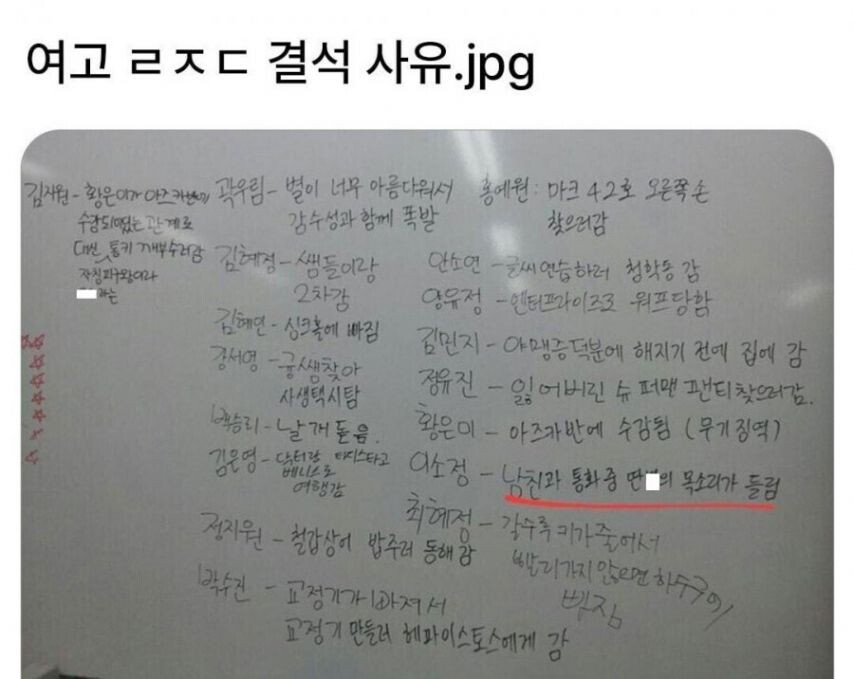 여고 ㄹㅈㄷ 결석 사유.jpg
김지원 - 황은미가 아즈카반에
수감되었는 관계로
대신 통키 깨부수러감
자칭피구왕이라
라는
곽우림 - 별이 너무 아름다워서
감수성과 함께 폭발
김혜정 - 쌤들이랑
2차감
김혜연 - 싱크홀에 빠짐
강서영 - 궁쌤찾아
사생택시탐
백승리 - 날개 돋음.
김은영 - 닥터랑 타디스타고
베니스로
여행감
정지원 - 철갑상어 밥주러 동해감
박수진 - 교정기가 빠져서
교정기 만들러 헤파이스토스에게 감
홍예원 : 마크 42호 오른쪽 손
찾으러감
안소연 - 글씨연습하러 청학동 감
양유정 - 엔터프라이즈호 워프당함
김민지 - 야맹증덕분에 해지기 전에 집에 감
정유진 - 잃어버린 슈퍼맨 팬티찾으러감.
황은미 - 아즈카반에 수감됨 (무기징역)
이소정 - 남친과 통화중 딴 의 목소리가 들림
최혜정 - 갈수록 키가 줄어서
빨리가지 않으면 하수구에
빠짐